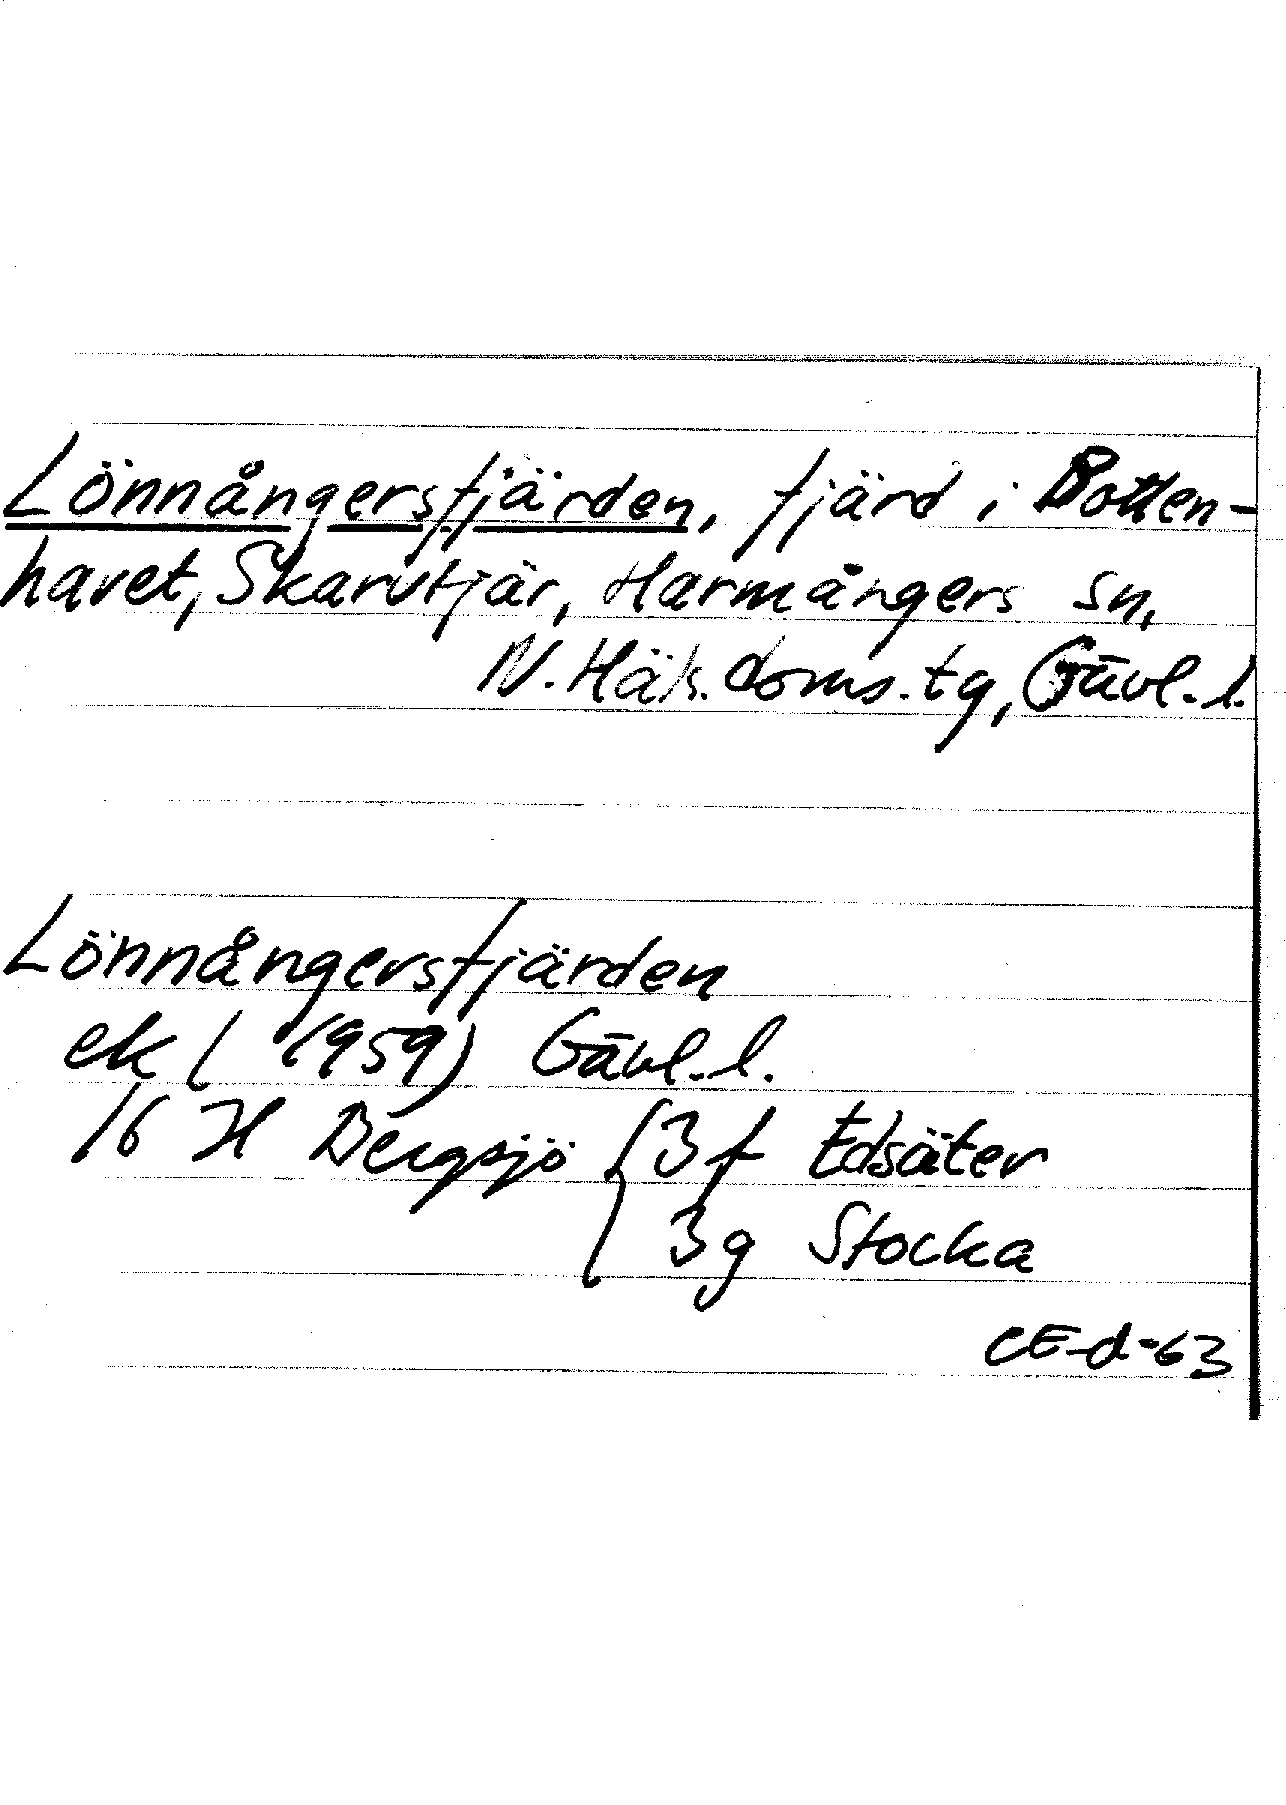 Lönnångersfjärden, fjärd i Botten-
havet, Skarvtjär, Harmångers sn,
N. Häls. doms. tg, Gävl. l.
Lönnångersfjärden
ek ( 1959) Gävl. l.
16 H Bergsjö { 3f Edsäter
3g Stocka
CE-d-63